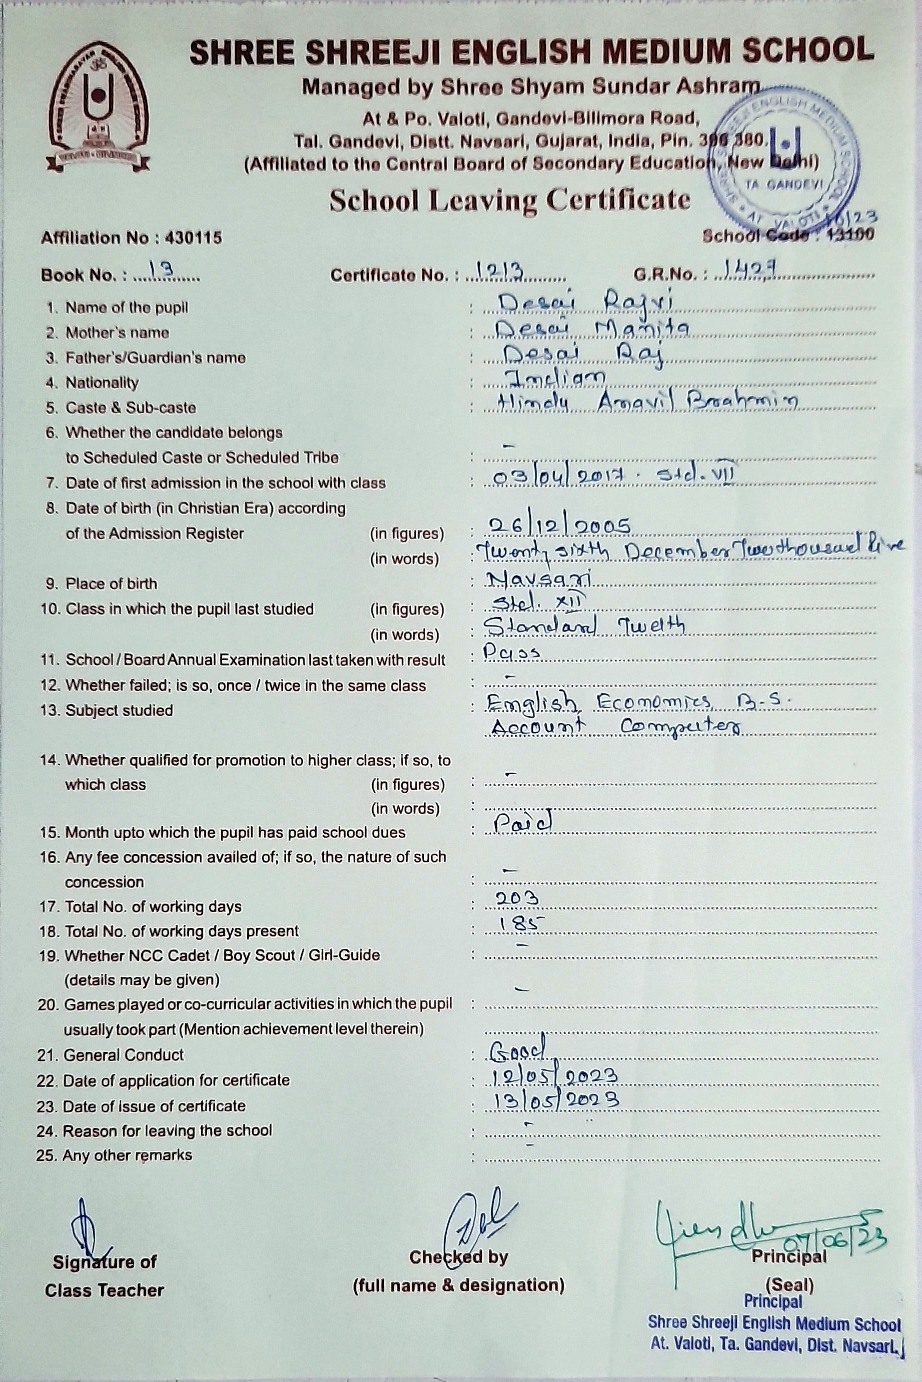 SHREE SHREEJI ENGLISH MEDIUM SCHOOL
Managed by Shree Shyam Sundar Ashram
At & Po. Valoti, Gandevi-Bilimora Road,
Tal. Gandevi, Distt. Navsari, Gujarat, India, Pin. 396 380.
(Affiliated to the Central Board of Secondary Education, New Delhi)
TA GANDEVI
School Leaving Certificate
Affiliation No : 430115 School Code : 13100
Book No. : 13 Certificate No. : 1213 G.R.No. : 1427
1. Name of the pupil : Desai Rajvi
2. Mother's name : Desai Manita
3. Father's/Guardian's name : Desai Raj
4. Nationality : Indian
5. Caste & Sub-caste : Hindu Anavil Brahmin
6. Whether the candidate belongs
to Scheduled Caste or Scheduled Tribe : -
7. Date of first admission in the school with class : 03/04/2017. Std. VII
8. Date of birth (in Christian Era) according
of the Admission Register (in figures) : 26/12/2005
(in words) : Twenty sixth December Twothousand five
9. Place of birth : Navsari
10. Class in which the pupil last studied (in figures) : Std. XII
(in words) : Standard Twelth
11. School / Board Annual Examination last taken with result : Pass
12. Whether failed; is so, once / twice in the same class : -
13. Subject studied : English Economics B.S.
Account Computer
14. Whether qualified for promotion to higher class; if so, to
which class (in figures) : -
(in words) :
15. Month upto which the pupil has paid school dues : Paid
16. Any fee concession availed of; if so, the nature of such
concession : -
17. Total No. of working days : 203
18. Total No. of working days present : 185
19. Whether NCC Cadet / Boy Scout / Girl-Guide : -
(details may be given)
20. Games played or co-curricular activities in which the pupil : -
usually took part (Mention achievement level therein)
21. General Conduct : Good
22. Date of application for certificate : 12/05/2023
23. Date of issue of certificate : 13/05/2023
24. Reason for leaving the school : -
25. Any other remarks : -
07/06/23
Signature of Checked by Principal
Class Teacher (full name & designation) (Seal)
Principal
Shree Shreeji English Medium School
At. Valoti, Ta. Gandevi, Dist. Navsari.